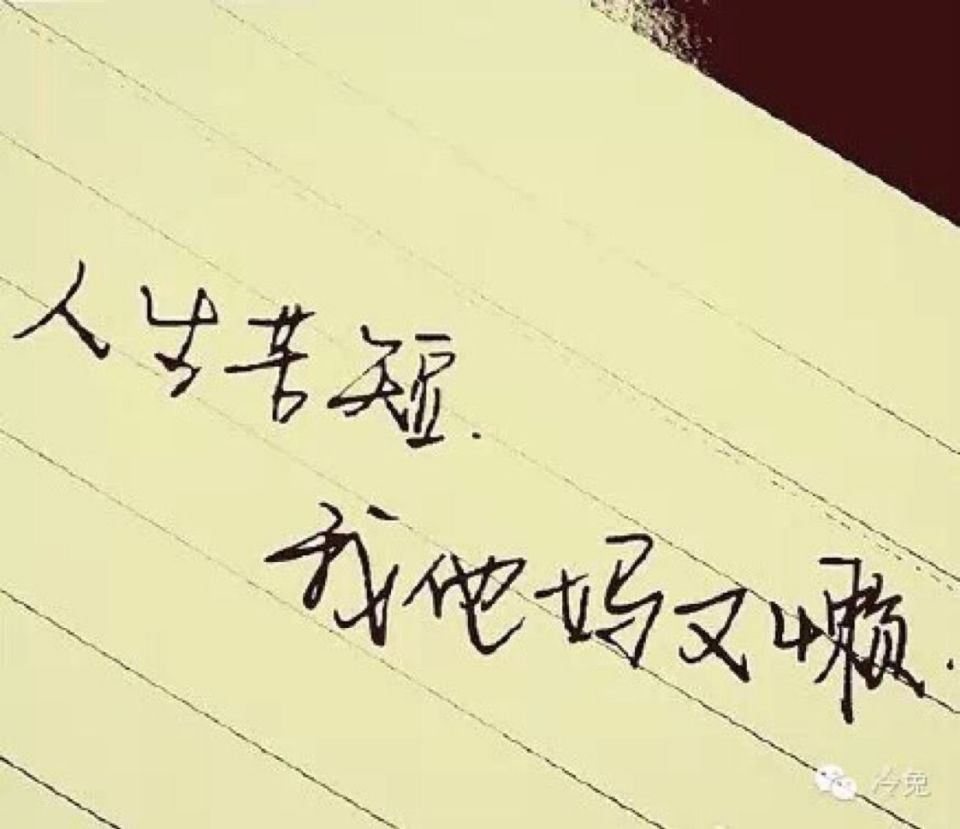 人生苦短.
我他妈又懒.
冷兔